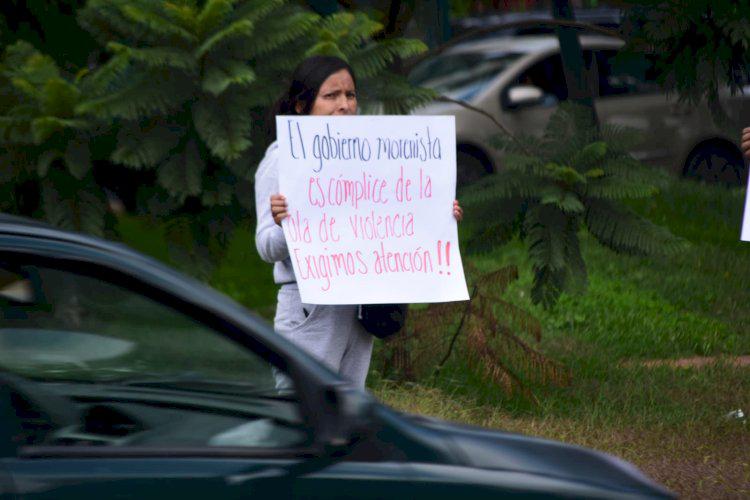 El gobierno morenista
es cómplice de la
ola de violencia
Exigimos atención!!